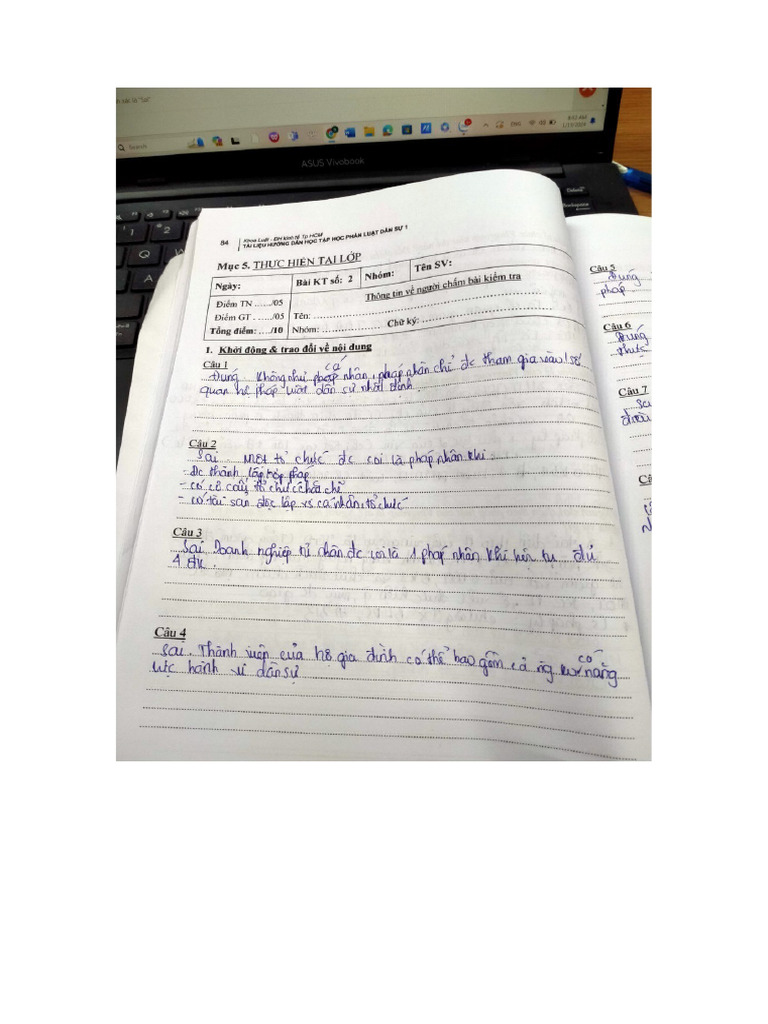 Search
8:02 AM
ENG
ASUS Vivobook
Delete
84 Khoa Luật - ĐH kinh tế Tp HCM
TÀI LIỆU HƯỚNG DẪN HỌC TẬP HỌC PHẦN LUẬT DÂN SỰ 1
Mục 5. THỰC HIỆN TẠI LỚP
Ngày: Bài KT số: 2 Nhóm: Tên SV:
Điểm TN ....../05 Thông tin về người chấm bài kiểm tra
Điểm GT ....../05 Tên:
Tổng điểm: ..../10 Nhóm: Chữ ký:
1. Khởi động & trao đổi về nội dung
Câu 1
Đúng. Không như cá nhân, pháp nhân chỉ đc tham gia vào 1 số
quan hệ pháp luật dân sự nhất định.
Câu 2
Sai. Một tổ chức đc coi là pháp nhân khi:
- Đc thành lập hợp pháp
- có cơ cấu tổ chức chặt chẽ
- có tài sản độc lập vs cá nhân, tổ chức
Câu 3
Sai. Doanh nghiệp tư nhân đc coi là 1 pháp nhân khi hội tụ đủ
4 đk.
Câu 4
Sai. Thành viên của hộ gia đình có thể bao gồm cả ng có năng
lực hành vi dân sự
Câu 5
Đúng
pháp
Câu 6
Đúng
Câu 7
Sai